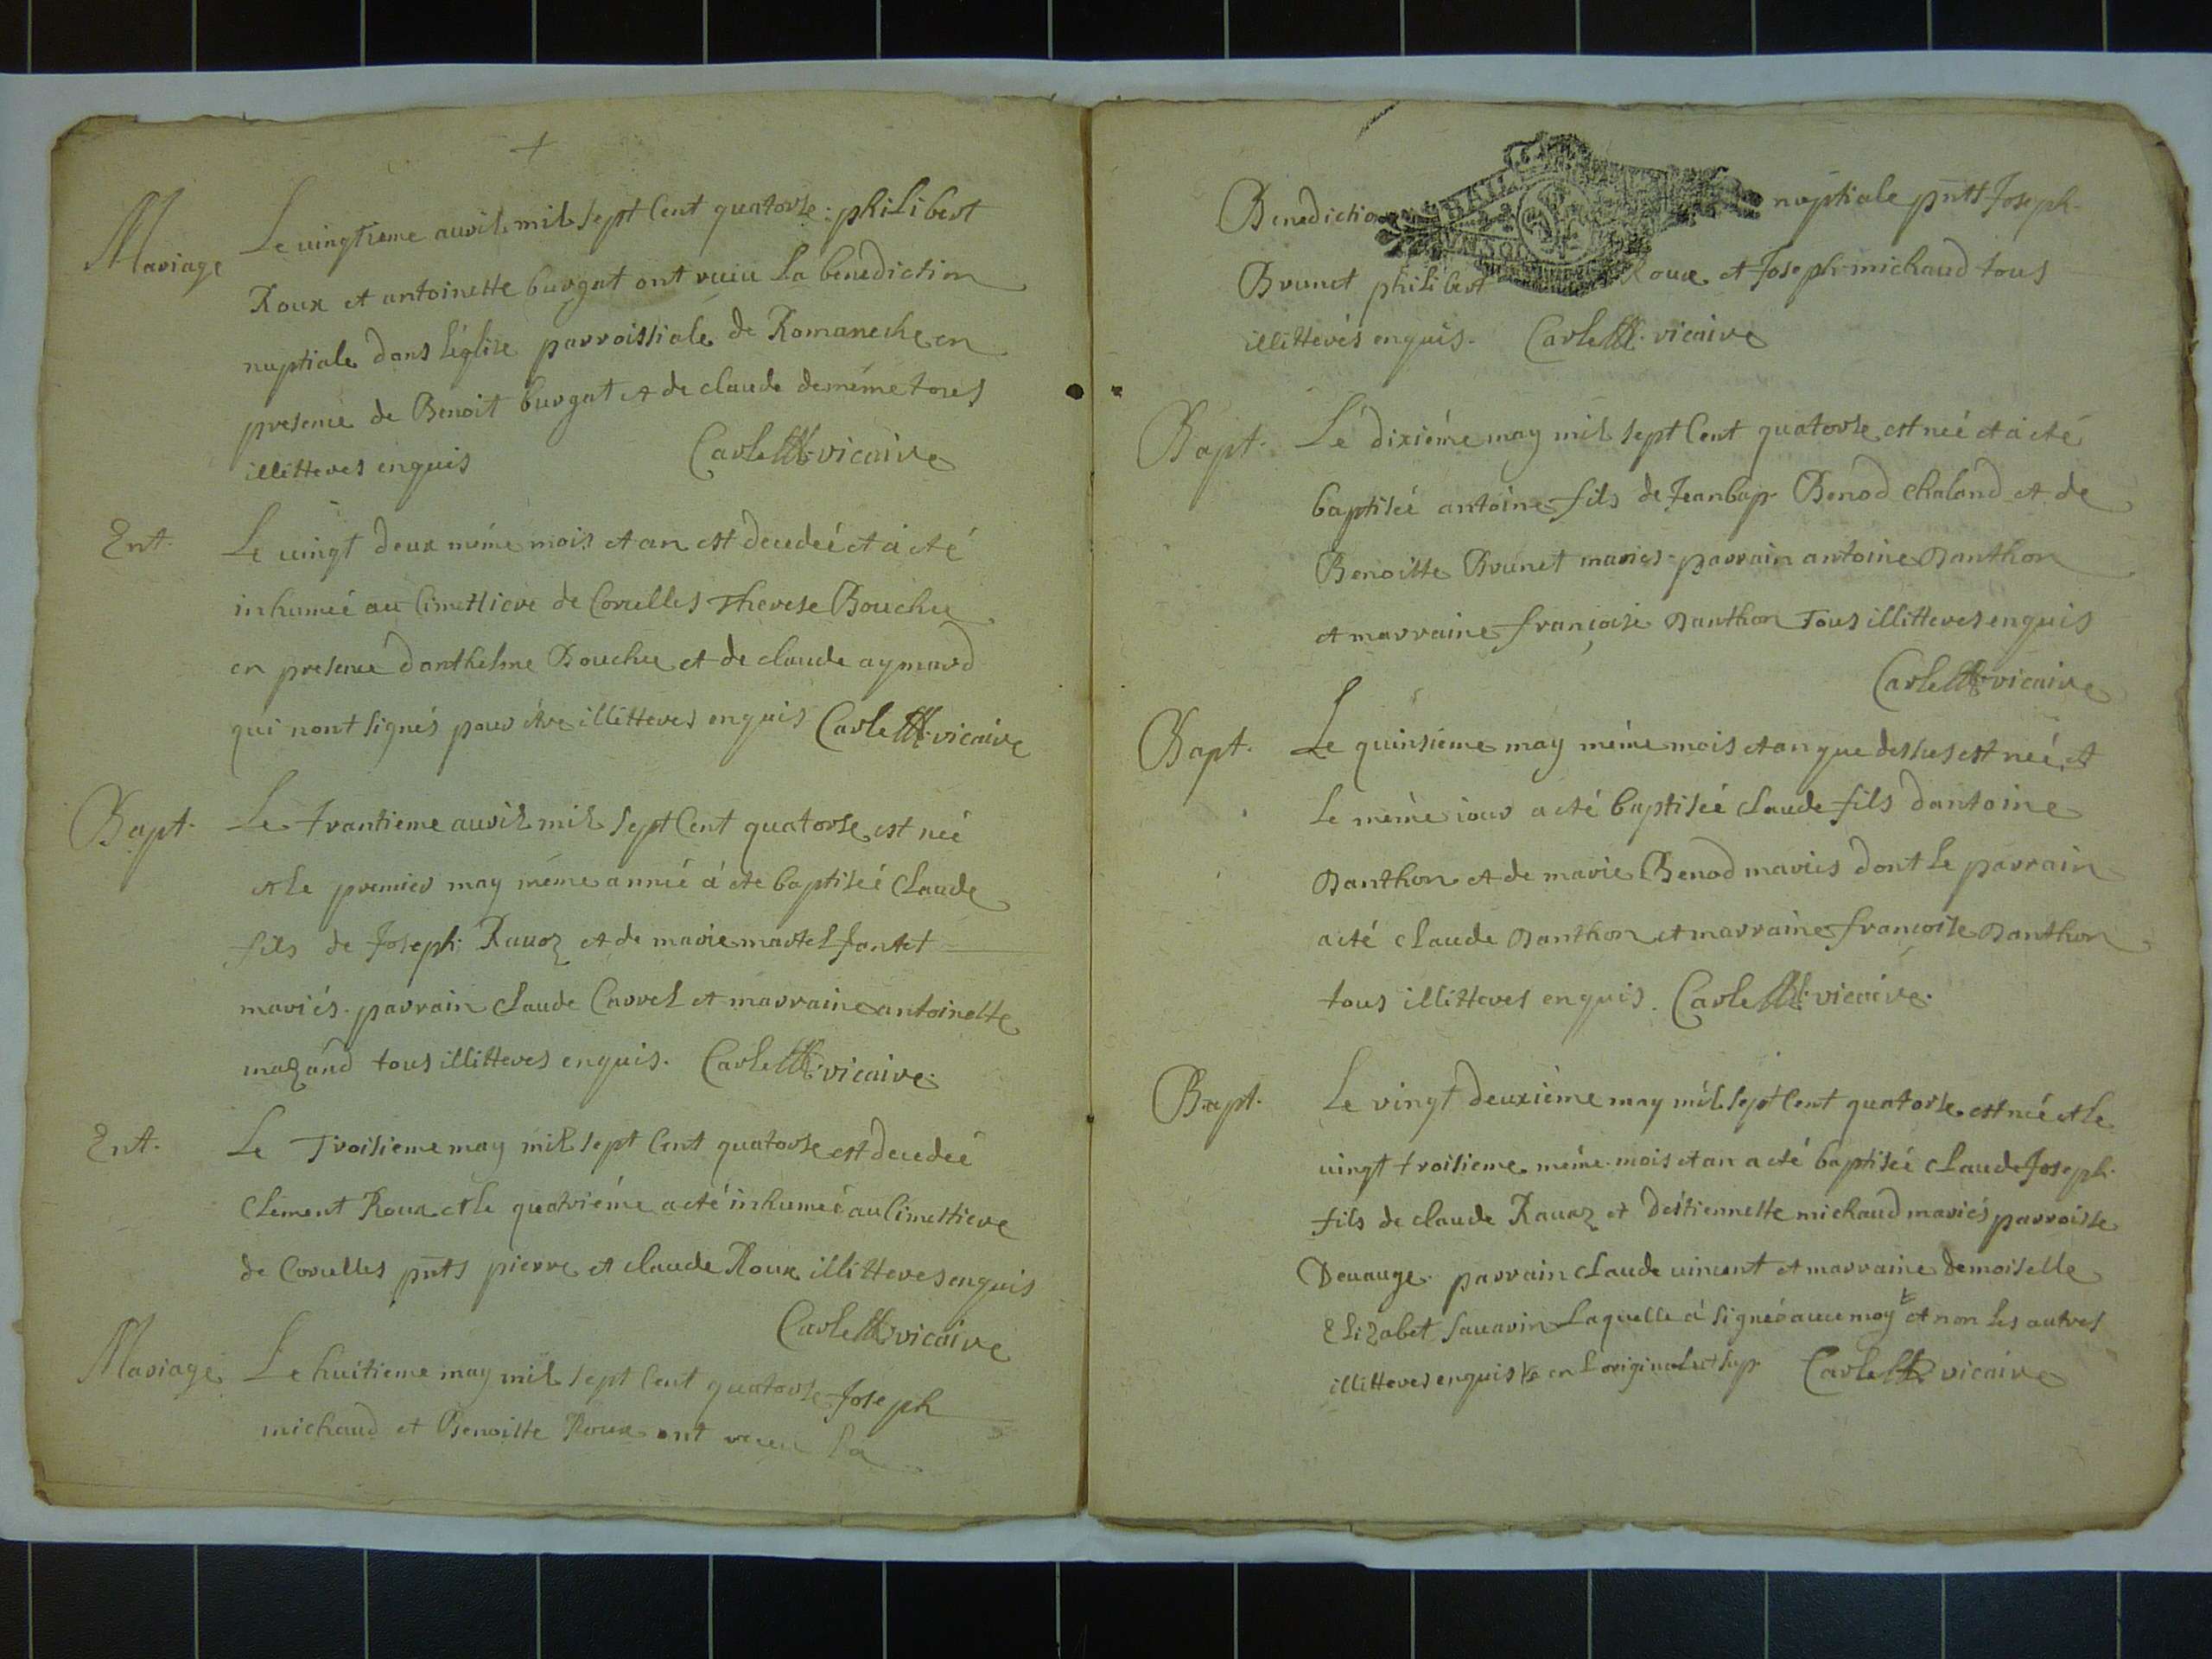 Mariage
Le uingtieme auvil mil sept Cent quatorse: philibert
Roux et antoinette burgat ont reçiu La benediction
nuptiale dans l'église parroissiale de Romaneche en
presence de Benoit burgat et de claude deméme tous
illitteres enquis Carlett. vicaire
Ent. Le uingt deux méme mois et an est decedeé et à eté
inhumeé au Cimettiere de Corcelles Therese Bouchu
en presence danthelme Bouchu et de claude aymard
qui n'ont signés pour étre illitteres enquis Carlett. vicaire
Bapt. Le trantieme auvril mil Sept Cent quatorse est neé
et le premier may méme anneé à eté baptiseé Claude
fils de Joseph Rauoz et de marie martel fontet
mariés. parrain Claude Carrel et marraine antoinette
mazand tous illitteres enquis. Carlett. vicaire.
Ent. Le Troisieme may mil sept Cent quatorse est decedeé
Clement Roux et le quatriéme a eté inhumeé au Cimettiere
de Corcelles pnts pierre et claude Roux illitteres enquis
Carlett. vicaire
Mariage Le huitieme may mil sept Cent quatorse Joseph
michaud et Benoitte Roux ont receu la
Benediction nuptiale pnts Joseph
Brunet philibert Roux et Joseph michaud tous
illitterés enquis. Carlett. vicaire
Bapt. Le dixiéme may mil sept Cent quatorse est neé et à eté
baptiseé antoine fils de Jeanbap. Benod chaland et de
Benoitte Brunet mariés. parrain antoine Danthon
et marraine françoise Danthon Tous illitteres enquis
Carlett. vicaire
Bapt. Le quinsieme may méme mois et an que dessus est neé et
le méme iour a eté baptiseé claude fils dantoine
Danthon et de marie Benod mariés dont le parrain
a eté claude Danthon et marraine françoise Danthon
tous illitteres enquis. Carlett. vicaire.
Bapt. Le vingt deuxiéme may mil sept Cent quatorse est neé et le
uingt troisieme méme mois et an a eté baptiseé claude Joseph
fils de claude Rauoz et destiennette michaud mariés parroisse
Deuange. parrain claude uincent et marraine demoiselle
Elizabet sauarin Laquelle à signeé auec moy et non les autres
illitteres enquis en L'original Carlett vicaire